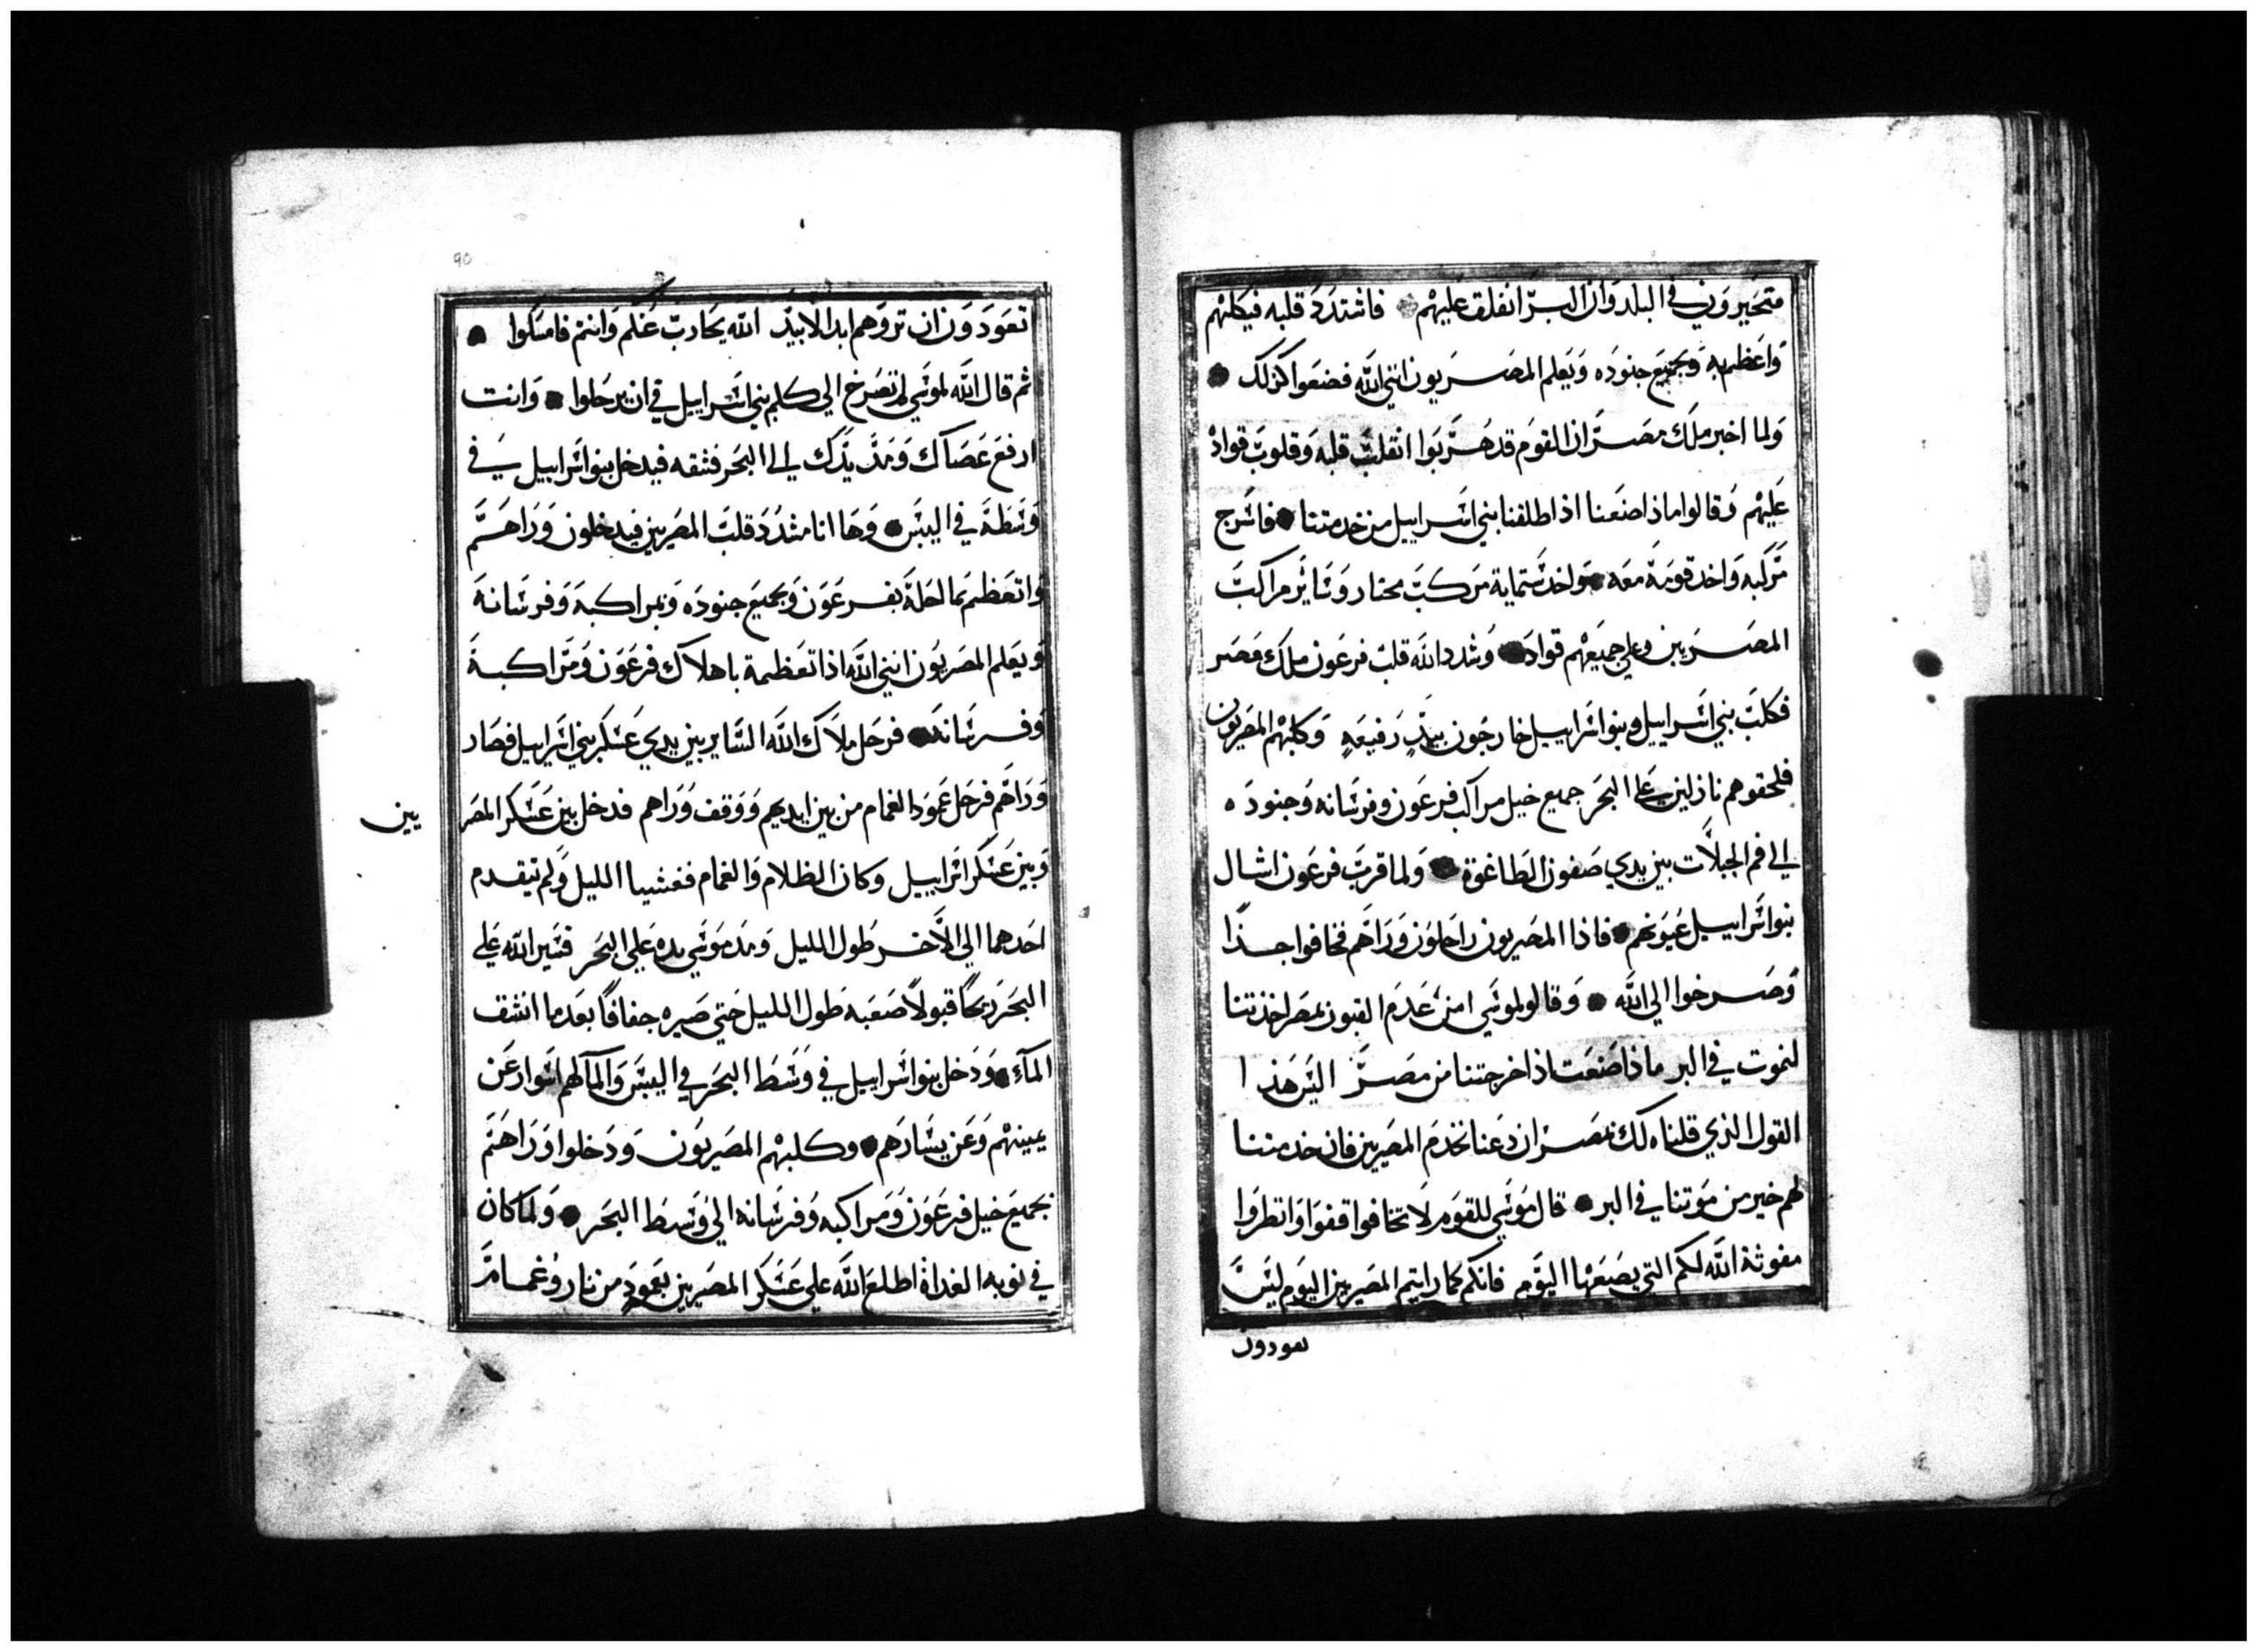 متحيرون في البلد وان البر انغلق عليهم فاشتدد قلبه فيكلبهم
واعظم به وبجميع جنوده ويعلم المصريون انني الله فصنعوا كذلك
ولما اخبر ملك مصر ان القوم قد هربوا انقلب قلبه وقلوب قواده
عليهم وقالوا ماذا صنعنا اذ اطلقنا بني اسراييل من خدمتنا فاسرج
مركبه واخد قومه معه واخد ستماية مركب مختار وساير مراكب
المصريين وعلي جميعهم قواد وشدد الله قلب فرعون ملك مصر
فكلب بني اسراييل وبنوا اسراييل خارجون بيد رفيعه وكلبهم المصريون
فلحقوهم نازلين علي البحر جميع خيل مراكب فرعون وفرسانه وجنوده
الي فم الجبلات بين يدي صفون الطاغوة ولما قرب فرعون اشال
بنوا اسراييل عيونهم فاذا المصريون راحلون وراهم فخافوا جدا
وصرخوا الي الله وقالو لموسي امن عدم القبور بمصر اخذتنا
لنموت في البر ماذا صنعت اذ اخرجتنا من مصر اليس هذا
القول الذي قلناه لك بمصر ان دعنا نخدم المصريين فان خدمتنا
لهم خير من موتنا في البر قال موسي للقوم لا تخافوا قفوا وانظروا
مغوثة الله لكم التي يصنعها اليوم فانكم كما رايتم المصريين اليوم ليس
تعودون
90
تعودون ان تروهم ابد الابيد الله يحارب عنكم وانتم فامسكوا
ثم قال الله لموسي لم تصرخ الي كلم بني اسراييل في ان يرحلوا وانت
ارفع عصاك ومد يدك الي البحر فشقه فيدخل بنوا اسراييل في
وسطه في اليبس وها انا مشدد قلب المصريين فيدخلون وراهم
واتعظم بما احله بفرعون وبجميع جنوده وبمراكبه وفرسانه
ويعلم المصريون انني الله اذا تعظمة باهلاك فرعون ومراكبه
وفرسانه فرحل ملاك الله الساير بين يدي عسكر بني اسراييل فصار
وراهم فرحل عمود الغمام من بين ايديهم ووقف وراهم فدخل بين عسكر المصر
يين
وبين عسكر اسراييل وكان الظلام والغمام فغشيا الليل ولم يتقدم
احدهما الي الآخر طول الليل ومد موسي يده علي البحر فسير الله علي
البحر ريحا قبولا صعبه طول الليل حتي صيره جفافا بعد ما انشق
المآء ودخل بنوا اسراييل في وسط البحر في اليبس والمآ لهم اسوار عن
يمينهم وعن يسارهم وكلبهم المصريون ودخلوا وراهم
بجميع خيل فرعون ومراكبه وفرسانه الي وسط البحر ولما كان
في نوبه الغداة اطلع الله علي عسكر المصريين بعمود من نار وغمام